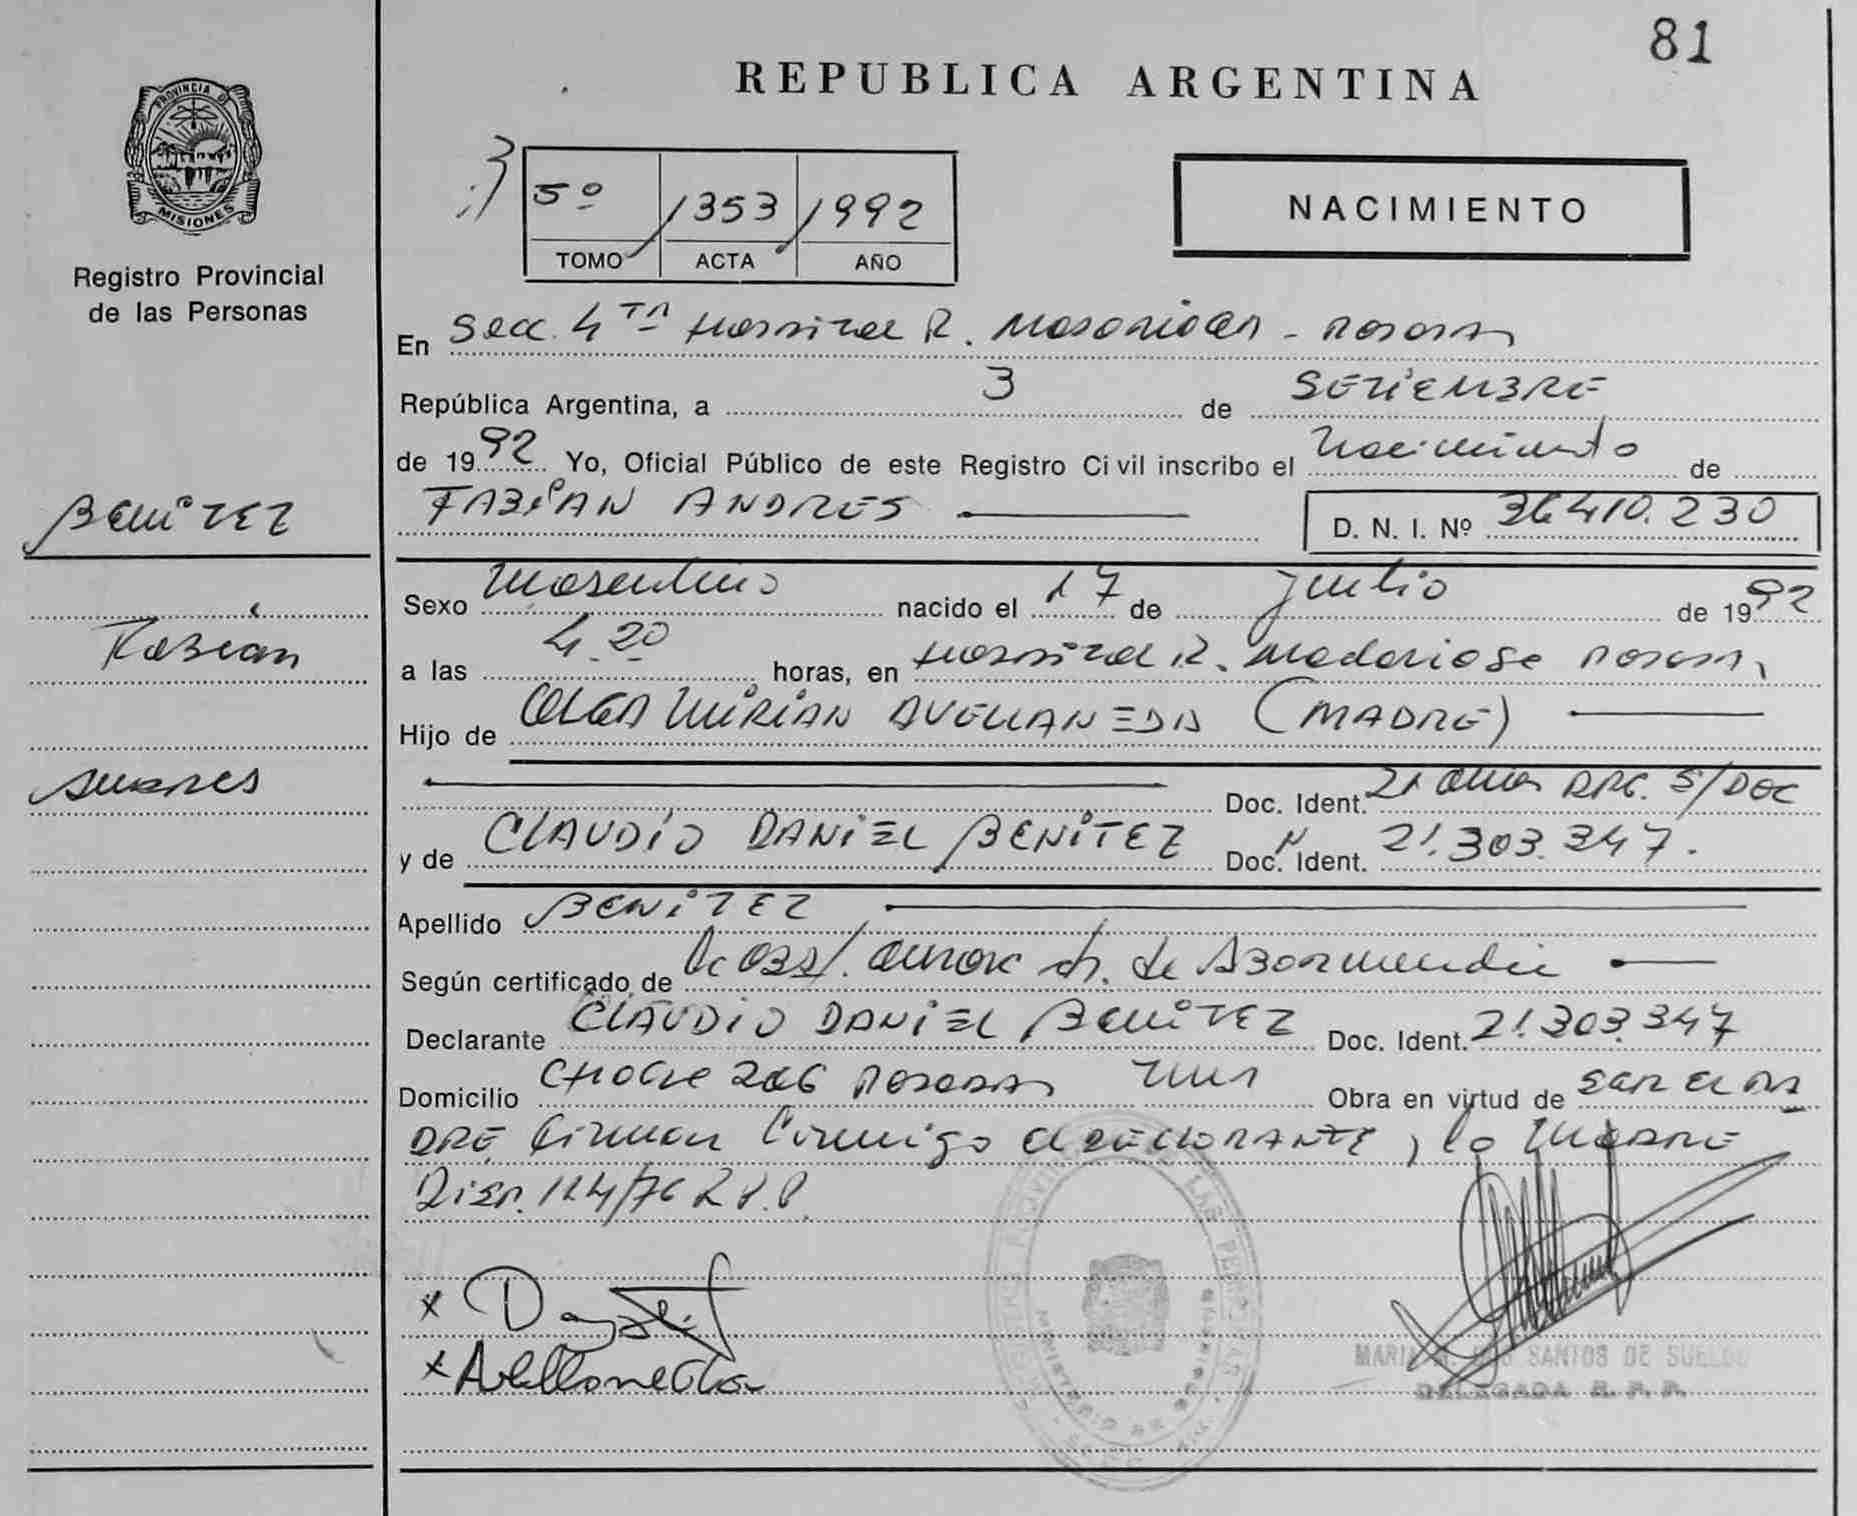 81
REPUBLICA ARGENTINA
PROVINCIA DE
MISIONES
Registro Provincial
de las Personas
5º 1353 1992
TOMO ACTA AÑO
NACIMIENTO
En Secc. 4TA Hospital R. Madariaga - Posadas
República Argentina, a 3 de SETIEMBRE
de 1992 Yo, Oficial Público de este Registro Civil inscribo el Nacimiento de
BENITEZ
FABIAN ANDRES D. N. I. Nº 36.410.230
Sexo Masculino nacido el 17 de Julio de 1992
Fabian
a las 4.20 horas, en Hospital R. Madariaga Posadas,
Hijo de OLGA MIRIAN AVELLANEDA (MADRE)
ANDRES
Doc. Ident. 21 años ARG. S/DOC
y de CLAUDIO DANIEL BENITEZ Doc. Ident. 21.303.347.
Apellido BENITEZ
Según certificado de de
Declarante CLAUDIO DANIEL BENITEZ Doc. Ident. 21.303.347
Domicilio 206 POSADAS Obra en virtud de SER EL PA
DRE, Firman Conmigo el DECLARANTE, la MADRE
Disp. /76 R.P.P.
x
x Avellaneda
MARIA SANTOS DE SUELDO
DELEGADA R. P. P.